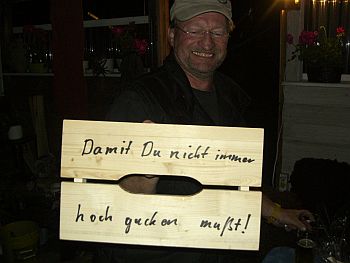 Damit Du nicht immer
hoch gucken mußt!